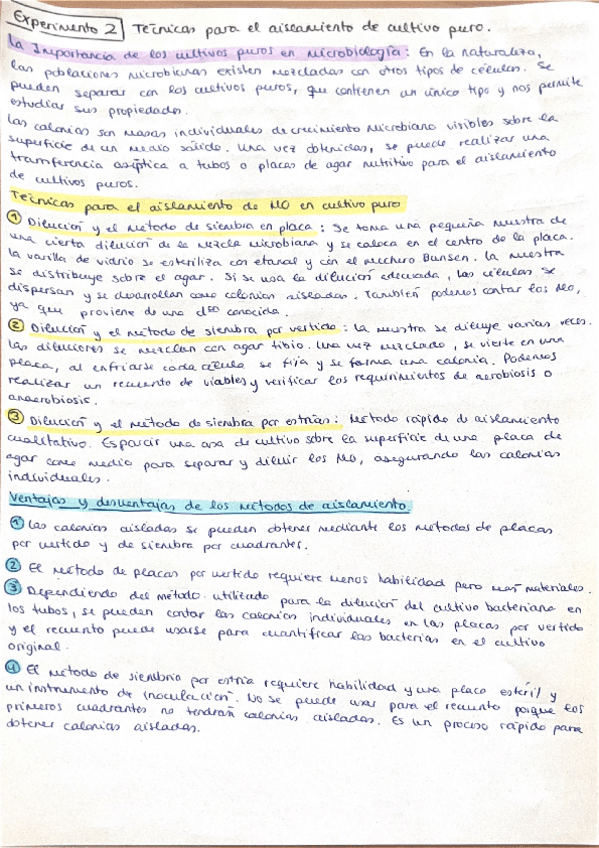 Experimento 2 Técnicas para el aislamiento de cultivo puro.
La Importancia de los cultivos puros en microbiología: En la naturaleza,
las poblaciones microbianas existen mezcladas con otros tipos de células. Se
pueden separar con los cultivos puros, que contienen un único tipo y nos permite
estudiar sus propiedades.
Las colonias son masas individuales de crecimiento microbiano visibles sobre la
superficie de un medio sólido. Una vez obtenidas, se puede realizar una
transferencia aséptica a tubos o placas de agar nutritivo para el aislamiento
de cultivos puros.
Técnicas para el aislamiento de MO en cultivo puro
① Dilución y el método de siembra en placa: Se toma una pequeña muestra de
una cierta dilución de la mezcla microbiana y se coloca en el centro de la placa.
La varilla de vidrio se esteriliza con etanol y con el mechero Bunsen. La muestra
se distribuye sobre el agar. Si se usa la dilución adecuada, las células se
dispersan y se desarrollan como colonias aisladas. También podemos contar los MO,
ya que proviene de una conocida.
② Dilución y el método de siembra por vertido: La muestra se diluye varias veces.
Las diluciones se mezclan con agar tibio. Una vez mezclado, se vierte en una
placa, al enfriarse cada célula se fija y se forma una colonia. Podemos
realizar un recuento de viables y verificar los requerimientos de aerobiosis o
anaerobiosis.
③ Dilución y el método de siembra por estrías: Método rápido di aislamiento
cualitativo. Esparcir una asa de cultivo sobre la superficie de una placa de
agar como medio para separar y diluir los MO, asegurando las colonias
individuales.
Ventajas y desventajas de los métodos de aislamiento
① Las colonias aisladas se pueden obtener mediante los métodos de placas
por vertido y de siembra por cuadrantes.
② El método de placas por vertido requiere menos habilidad pero más materiales.
③ Dependiendo del método utilizado para la dilución del cultivo bacteriano en
los tubos, se pueden contar las colonias individuales en las placas por vertido
y el recuento puede usarse para cuantificar las bacterias en el cultivo
original.
④ El método de siembra por estría requiere habilidad y una placa estéril y
un instrumento de inoculación. No se puede usar para el recuento porque los
primeros cuadrantes no tendrán colonias aisladas. Es un proceso rápido para
obtener colonias aisladas.